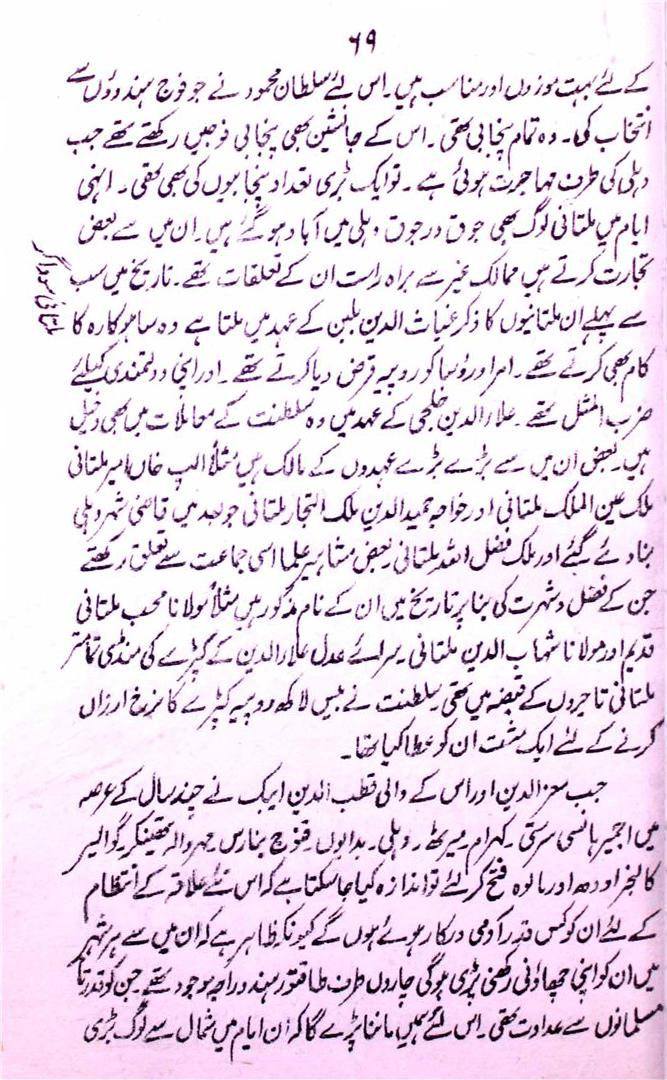 ۶۹
کے لئے بہت موزوں اور مناسب ہیں۔ اس لئے سلطان محمود نے جو فوج ہندوؤں سے
انتخاب کی۔ وہ تمام پنجابی تھی۔ اس کے جانشین بھی پنجابی فوجیں رکھتے تھے جب
دہلی کی طرف مہاجرت ہوئی ہے۔ تو ایک بڑی تعداد پنجابیوں کی بھی تھی۔ انہی
ایام میں ملتانی لوگ بھی جوق در جوق دہلی میں آباد ہو گئے ہیں۔ ان میں سے بعض
تجارت کرتے ہیں ممالک غیر سے براہ راست ان کے تعلقات تھے۔ تاریخ میں سب
ملتانی سوداگر
سے پہلے ان ملتانیوں کا ذکر غیاث الدین بلبن کے عہد میں ملتا ہے وہ ساہوکارہ کا
کام بھی کرتے تھے۔ امرا و رؤسا کو روپیہ قرض دیا کرتے تھے۔ اور اپنی دولتمندی کیلئے
ضرب المثل تھے۔ علاء الدین خلجی کے عہد میں وہ سلطنت کے معاملات میں بھی دخیل
ہیں۔ بعض ان میں سے بڑے بڑے عہدوں کے مالک ہیں مثلاً الپ خاں امیر ملتانی
ملک عین الملک ملتانی اور خواجہ حمید الدین ملک التجار ملتانی جو بعد میں قاضی شہر دہلی
بنا دئے گئے اور ملک فضل اللہ ملتانی۔ بعض مشاہیر علما اسی جماعت سے تعلق رکھتے
جن کے فضل و شہرت کی بنا پر تاریخ میں ان کے نام مذکور ہیں مثلاً مولانا محب ملتانی
قدیم اور مولانا شہاب الدین ملتانی۔ سرائے عدل علاء الدین کے کپڑے کی منڈی تمامتر
ملتانی تاجروں کے قبضہ میں تھی۔ سلطنت نے بیس لاکھ روپیہ کپڑے کا نرخ ارزاں
کرنے کے لئے ایک مشت ان کو عطا کیا تھا۔
جب معز الدین اور اس کے والی قطب الدین ایبک نے چند سال کے عرصہ
میں اجمیر ہانسی سرستی۔ کہرام میرٹھ۔ دہلی۔ بدایوں۔ قنوج بنارس نہروالہ تھینکر گوالیر
کالنجر اودھ اور مالوہ فتح کر لئے تو اندازہ کیا جا سکتا ہے کہ اس نئے علاقہ کے انتظام
کے لئے ان کو کس قدر آدمی درکار ہوئے ہوں گے کیونکہ ظاہر ہے کہ ان میں سے ہر شہر
میں ان کو اپنی چھاؤنی رکھنی پڑی ہوگی چاروں طرف طاقتور ہندو راجہ موجود تھے۔ جن کو قدرتاً
مسلمانوں سے عداوت تھی۔ اس لئے ہمیں ماننا پڑے گا کہ ان ایام میں شمال سے لوگ بڑی